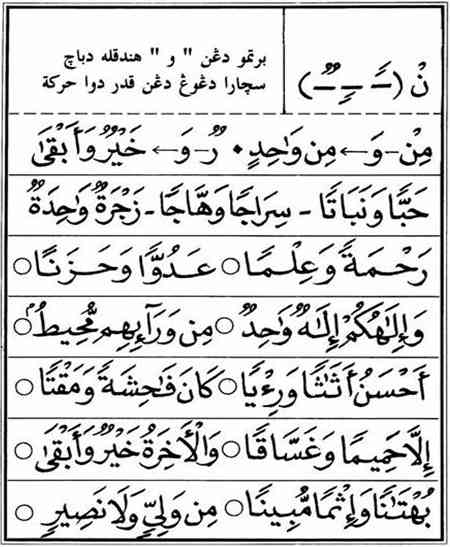 نْ (ـًـ ـٍـ ـٌـ)
برتمو دڠن " و " هندقله دباچ
سچارا دڠوڠ دڠن قدر دوا حركة
مِنْ-وَ ← مِن وَٰحِدٍ • رٌ-وَ ← خَيْرٌ وَأَبْقَىٰ
حَبًّا وَنَبَاتًا - سِرَاجًا وَهَّاجًا - زَجْرَةٌ وَٰحِدَةٌ
رَحْمَةً وَعِلْمًا ○ عَدُوًّا وَحَزَنًا ○
وَإِلَٰهُكُمْ إِلَٰهٌ وَٰحِدٌ ○ مِن وَرَآئِهِم مُّحِيطٌ ○
أَحْسَنُ أَثَٰثًا وَرِءْيًا ○ كَانَ فَٰحِشَةً وَمَقْتًا ○
إِلَّا حَمِيمًا وَغَسَّاقًا ○ وَالْأَخِرَةُ خَيْرٌ وَأَبْقَىٰ ○
بُهْتَٰنًا وَإِثْمًا مُّبِينًا ○ مِن وَلِيٍّ وَلَا نَصِيرٍ ○